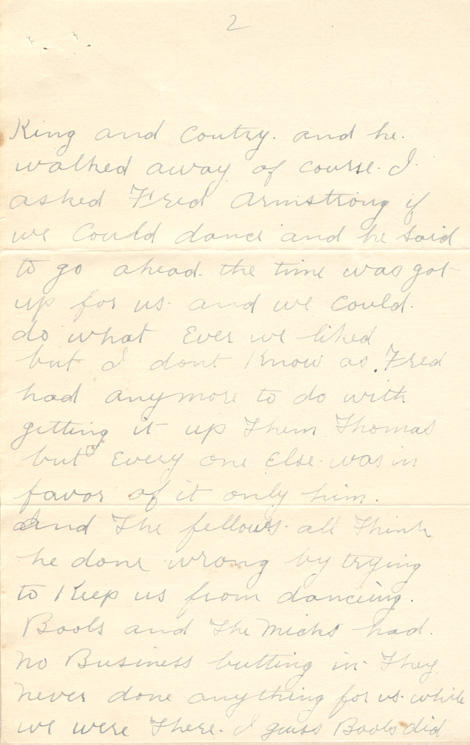 2
King and Coutry. and he.
walked away of course. I
asked Fred Armstrong if
we Could dance and he said
to go ahead. the time was got
up for us. and we could.
do what Ever we liked
but I dont Know as Fred
had anymore to do with
getting it up Them Thomas
but Every one Else was in
favor of it only him.
And The fellows all Think
he done wrong by trying
to Keep us from dancing.
Boobs and The Micks had.
no Business butting in They
never done anything for us while
we were There. I guess Boobs did